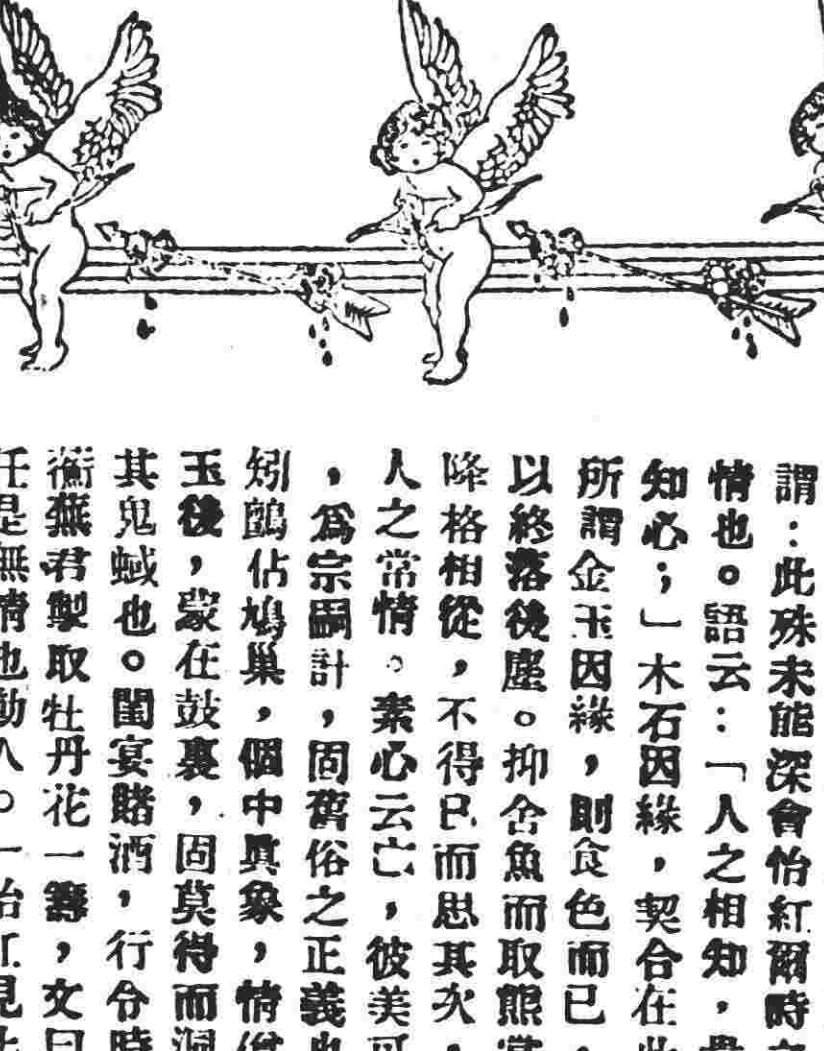 謂：此殊未能深會怡紅爾時
情也。語云：「人之相知，貴
知心；」木石因緣，契合在此
所謂金玉因緣，則食色而已，
以終落後塵。抑舍魚而取熊掌
降格相從，不得已而思其次，
人之常情。素心云亡，彼美可
，爲宗嗣計，固舊俗之正義也
矧鵲佔鳩巢，個中眞象，情
玉後，蒙在鼓裏，固莫得而洞
其鬼蜮也。閨宴賭酒，行令時
蘅蕪君掣取牡丹花一籌，文曰
任是無情也動人。一怡紅見此